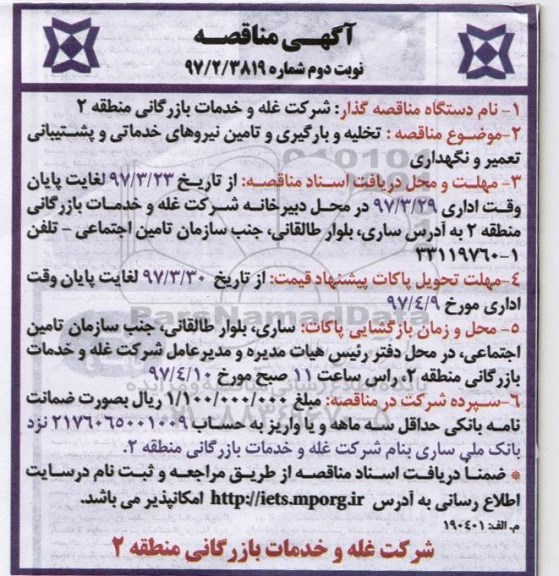 آگهی مناقصه
نوبت دوم شماره ۹۷/۲/۳۸۱۹
۱- نام دستگاه مناقصه گذار: شرکت غله و خدمات بازرگانی منطقه ۲
۲-موضوع مناقصه : تخلیه و بارگیری و تامین نیروهای خدماتی و پشتیبانی
تعمیر و نگهداری
۳- مهلت و محل دریافت اسناد مناقصه: از تاریخ ۹۷/۳/۲۳ لغایت پایان
وقت اداری ۹۷/۳/۲۹ در محل دبیرخانه شرکت غله و خدمات بازرگانی
منطقه ۲ به آدرس ساری، بلوار طالقانی، جنب سازمان تامین اجتماعی - تلفن
۳۳۱۱۹۷۶۰-۱
۴-مهلت تحویل پاکات پیشنهاد قیمت: از تاریخ ۹۷/۳/۳۰ لغایت پایان وقت
اداری مورخ ۹۷/۴/۹
۵- محل و زمان بازگشایی پاکات: ساری، بلوار طالقانی، جنب سازمان تامین
اجتماعی، در محل دفتر رئیس هیات مدیره و مدیرعامل شرکت غله و خدمات
بازرگانی منطقه ۲ راس ساعت ۱۱ صبح مورخ ۹۷/۴/۱۰
۶-سپرده شرکت در مناقصه: مبلغ ۱/۱۰۰/۰۰۰/۰۰۰ ریال بصورت ضمانت
نامه بانکی حداقل سه ماهه و یا واریز به حساب ۲۱۷۶۰۶۵۰۰۱۰۰۹ نزد
بانک ملی ساری بنام شرکت غله و خدمات بازرگانی منطقه ۲.
* ضمنا دریافت اسناد مناقصه از طریق مراجعه و ثبت نام درسایت
اطلاع رسانی به آدرس http://iets.mporg.ir امکانپذیر می باشد.
م.الف: ۱۹۰۴۰۱
شرکت غله و خدمات بازرگانی منطقه ۲
ParsNamadData